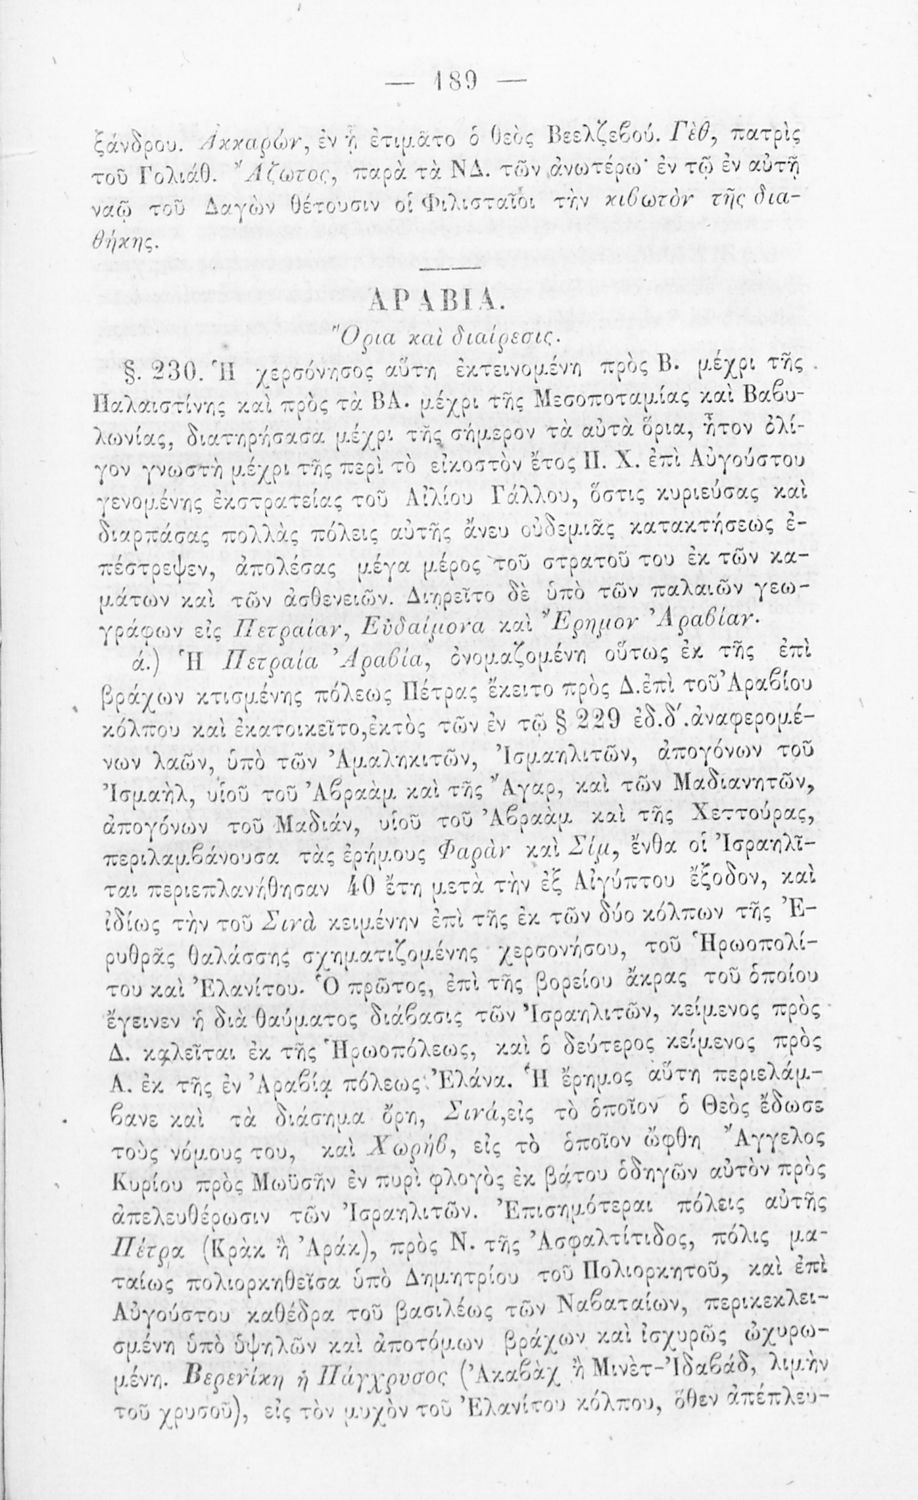 — 189 —
ξάνδρου. Ἀκκαρών, ἐν ᾗ ἐτιμᾶτο ὁ θεὸς Βεελζεβού. Γὲθ, πατρὶς
τοῦ Γολιάθ. Ἄζωτος, παρὰ τὰ ΝΔ. τῶν ἀνωτέρω· ἐν τῷ ἐν αὐτῇ
ναῷ τοῦ Δαγὼν θέτουσιν οἱ Φιλισταῖοι τὴν κιβωτὸν τῆς δια-
θήκης.
ἈΡΑΒΙΑ.
Ὅρια καὶ διαίρεσις.
§. 230. Ἡ χερσόνησος αὕτη ἐκτεινομένη πρὸς Β. μέχρι τῆς
Παλαιστίνης καὶ πρὸς τὰ ΒΑ. μέχρι τῆς Μεσοποταμίας καὶ Βαβυ-
λωνίας, διατηρήσασα μέχρι τῆς σήμερον τὰ αὐτὰ ὅρια, ἦτον ὀλί-
γον γνωστὴ μέχρι τῆς περὶ τὸ εἰκοστὸν ἔτος Π. Χ. ἐπὶ Αὐγούστου
γενομένης ἐκστρατείας τοῦ Αἰλίου Γάλλου, ὅστις κυριεύσας καὶ
διαρπάσας πολλὰς πόλεις αὐτῆς ἄνευ οὐδεμιᾶς κατακτήσεως ἐ-
πέστρεψεν, ἀπολέσας μέγα μέρος τοῦ στρατοῦ του ἐκ τῶν κα-
μάτων καὶ τῶν ἀσθενειῶν. Διῃρεῖτο δὲ ὑπὸ τῶν παλαιῶν γεω-
γράφων εἰς Πετραίαν, Εὐδαίμονα καὶ Ἔρημον Ἀραβίαν.
ά.) Ἡ Πετραία Ἀραβία, ὀνομαζομένη οὕτως ἐκ τῆς ἐπὶ
βράχων κτισμένης πόλεως Πέτρας ἔκειτο πρὸς Δ.ἐπὶ τοῦ Ἀραβίου
κόλπου καὶ ἐκατοικεῖτο,ἐκτὸς τῶν ἐν τῷ § 229 ἐδ.δ΄.ἀναφερομέ-
νων λαῶν, ὑπὸ τῶν Ἀμαληκιτῶν, Ἰσμαηλιτῶν, ἀπογόνων τοῦ
Ἰσμαὴλ, υἱοῦ τοῦ Ἀβραὰμ καὶ τῆς Ἄγαρ, καὶ τῶν Μαδιανητῶν,
ἀπογόνων τοῦ Μαδιάν, υἱοῦ τοῦ Ἀβραὰμ καὶ τῆς Χεττούρας,
περιλαμβάνουσα τὰς ἐρήμους Φαρὰν καὶ Σίμ, ἔνθα οἱ Ἰσραηλῖ-
ται περιεπλανήθησαν 40 ἔτη μετὰ τὴν ἐξ Αἰγύπτου ἔξοδον, καὶ
ἰδίως τὴν τοῦ Σινᾶ κειμένην ἐπὶ τῆς ἐκ τῶν δύο κόλπων τῆς Ἐ-
ρυθρᾶς θαλάσσης σχηματιζομένης χερσονήσου, τοῦ Ἡρωοπολί-
του καὶ Ἐλανίτου. Ὁ πρῶτος, ἐπὶ τῆς βορείου ἄκρας τοῦ ὁποίου
ἔγεινεν ἡ διὰ θαύματος διάβασις τῶν Ἰσραηλιτῶν, κείμενος πρὸς
Δ. καλεῖται ἐκ τῆς Ἡρωοπόλεως, καὶ ὁ δεύτερος κείμενος πρὸς
Α. ἐκ τῆς ἐν Ἀραβίᾳ πόλεως Ἐλάνα. Ἡ ἔρημος αὕτη περιελάμ-
βανε καὶ τὰ διάσημα ὄρη, Σινά,εἰς τὸ ὁποῖον ὁ Θεὸς ἔδωσε
τοὺς νόμους του, καὶ Χωρήβ, εἰς τὸ ὁποῖον ὤφθη Ἄγγελος
Κυρίου πρὸς Μωϋσῆν ἐν πυρὶ φλογὸς ἐκ βάτου ὁδηγῶν αὐτὸν πρὸς
ἀπελευθέρωσιν τῶν Ἰσραηλιτῶν. Ἐπισημότεραι πόλεις αὐτῆς
Πέτρα (Κρὰκ ἢ Ἀράκ), πρὸς Ν. τῆς Ἀσφαλτίτιδος, πόλις μα-
ταίως πολιορκηθεῖσα ὑπὸ Δημητρίου τοῦ Πολιορκητοῦ, καὶ ἐπὶ
Αὐγούστου καθέδρα τοῦ βασιλέως τῶν Ναβαταίων, περικεκλει-
σμένη ὑπὸ ὑψηλῶν καὶ ἀποτόμων βράχων καὶ ἰσχυρῶς ὠχυρω-
μένη. Βερενίκη ἡ Πάγχρυσος (Ἀκαβὰχ ἢ Μινὲτ-Ἰδαβάδ, λιμὴν
τοῦ χρυσοῦ), εἰς τὸν μυχὸν τοῦ Ἐλανίτου κόλπου, ὅθεν ἀπέπλευ-